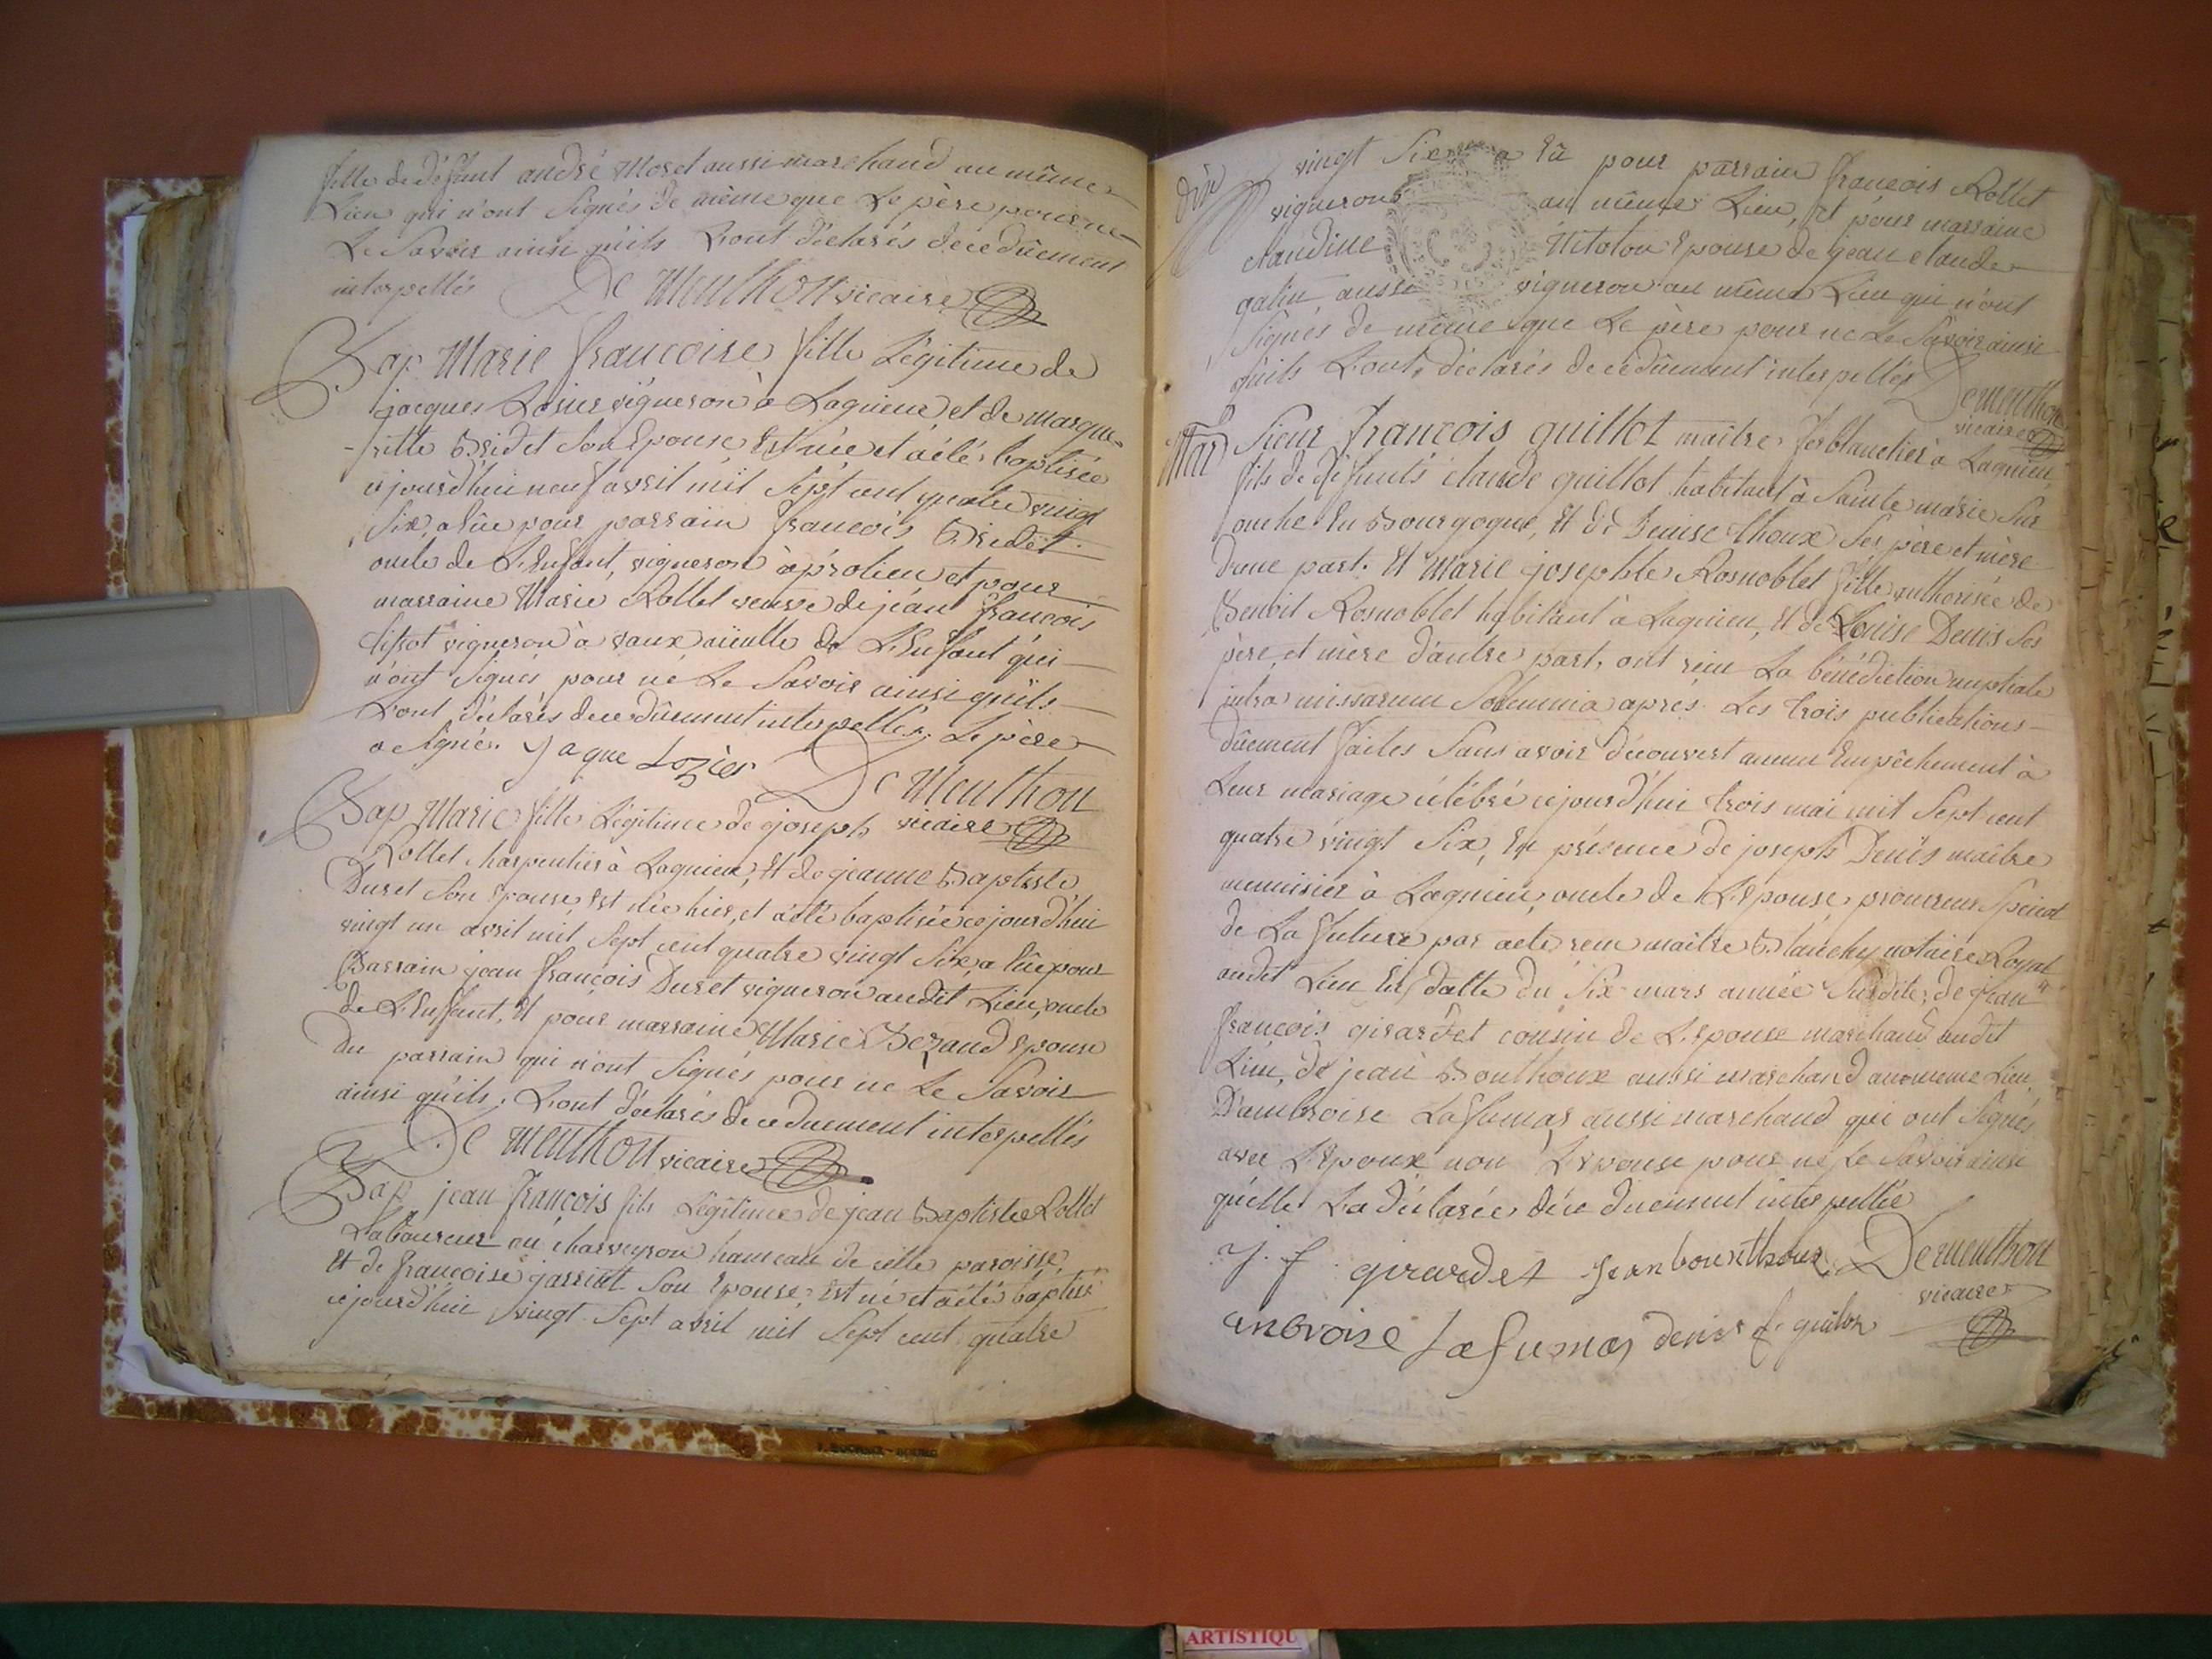 fille de défunt andré Moret aussi marchand au même
Lieu qui n'ont signés de même que Le père pour ne
Le savoir ainsi qu'ils L'ont déclarés de ce dûement
interpellés De Menthon vicaire
Bap Marie françoise fille Légitime de
jacques Losier vigneron à Lagnieu et de margue-
-ritte Bridet son Epouse Est née et a été baptisée
cejourd'hui neuf avril mil sept cent quatre vingt
six, a Eûe pour parrain françois Bridet
oncle de L'Enfant, vigneron à prolieu et pour
marraine Marie Rollet veuve de jean françois
tissot vigneron à vaux aieulle de L'Enfant qui
n'ont signés pour ne Le savoir ainsi qu'ils
L'ont déclarés de ce dûement interpellés, Le père
a signé. Jaque Lozier De Menthon
vicaire
Bap Marie fille Légitime de joseph
Rollet charpentier à Lagnieu, Et de jeanne Baptiste
Duret son Epouse Est née hier, et a été baptisée cejourd'hui
vingt un avril mil sept cent quatre vingt six, a Eûe pour
Parrain jean françois Duret vigneron audit Lieu, oncle
de L'Enfant, Et pour marraine Marie Bezand Epouse
du parrain qui n'ont signés pour ne Le savoir
ainsi qu'ils L'ont déclarés de ce duement interpellés
De Menthon vicaire
Bap jean françois fils Légitime de jean Baptiste Rollet
Laboureur au charveyron hameau de cette paroisse
Et de françoise jarrint son Epouse, Est né et a été baptisé
cejourd'hui vingt sept avril mil sept cent quatre
dix
vingt six a Eû pour parrain françois Rollet
vigneron au même Lieu, Et pour marraine
claudine Epouse de jean claude
galin aussi vigneron au même Lieu qui n'ont
signés de même que Le père pour ne Le savoir ainsi
qu'ils L'ont déclarés de ce dûement interpellés Dementhon
vicaire
Mar Sieur françois guillot maître ferblantier à Lagnieu,
fils de défunts claude guillot habitant à Sainte marie sur
ouche En Bourgogne, Et de Denise thoux ses père et mère
d'une part. Et Marie josephte Rosnoblet fille authorisée de
Benoit Rosnoblet habitant à Lagnieu, Et de Louise Denis ses
père, et mère d'autre part, ont reçu La bénédiction nuptiale
intra missarum solemnia après Les trois publications
dûement faites sans avoir découvert aucun Empêchement à
Leur mariage célébré cejourd'hui trois mai mil sept cent
quatre vingt six, En présence de joseph Denis maître
menuisier à Lagnieu, oncle de L'Epouse, procureur spécial
de La future par acte reçu maître Blanchy notaire Royal
audit Lieu En datte du six mars année susdite, de jean
françois girardet cousin de L'Epouse marchand audit
Lieu, de jean Bonthoux aussi marchand au même Lieu
D'ambroise Lafumas aussi marchand qui ont signés
avec L'Epoux non L'Epouse pour ne Le savoir ainsi
qu'elle La déclarée de ce duement interpellée
J. f girardet Jean bountthoux Dementhon
vicaire
anbroise Lafumas denis f. guillot
ARTISTIQU